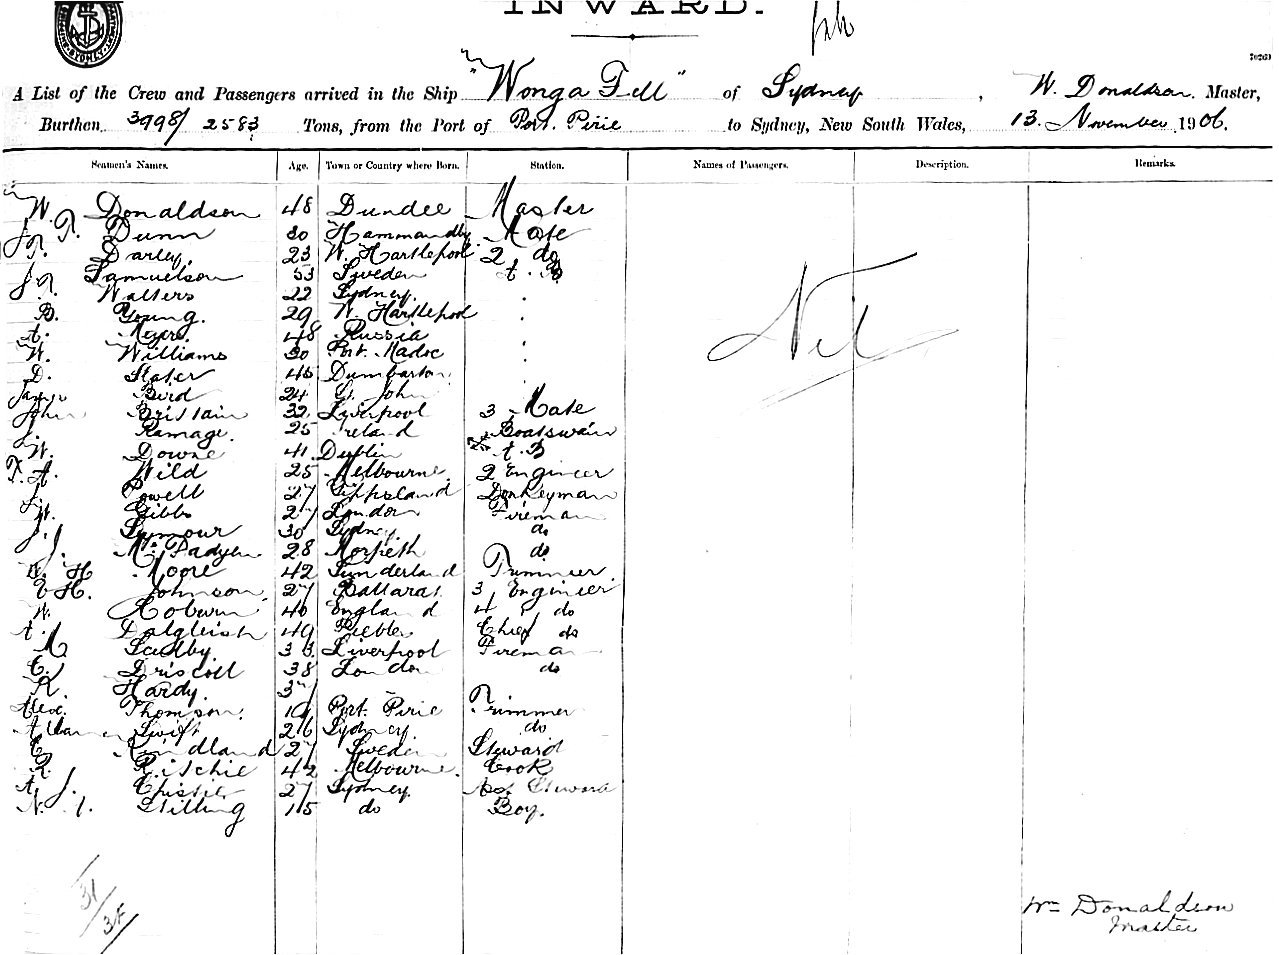 INWARD.
SYDNEY
A List of the Crew and Passengers arrived in the Ship "Wonga Fell" of Sydney, W. Donaldson. Master,
Burthen 3998/2583 Tons, from the Port of Port. Pirie to Sydney, New South Wales, 13. November 1906.
Seamen's Names. Age. Town or Country where Born. Station. Names of Passengers. Description. Remarks.
W. Donaldson 48 Dundee Master
T. Dunn 30 Mate
Darley. 23 W. Hartlepool 2 do
Samuelson 53 Sweden A.B
Walters 22 Sydney.
B. Young. 29 W. Hartlepool
A. Meyer. 48 Russia
W. Williams 30 Port. Madoc
D. Slater 45 Dumbarton
James Bird 24 St. John
John Brittain 32 Liverpool 3 Mate
Ramage. 25 Ireland Boatswain
W. Downe 41. Dublin A.B
T. A. Wild 25 Melbourne 2 Engineer
J. Powell 27 Gippsland Donkeyman
W. Gibbs 27 London Fireman
J. Seymour 30 Sydney. do
J. 28 Morpeth do
W. H Moore 42 Sunderland Trimmer.
E H. Johnson. 27 Ballarat 3 Engineer
W. Coburn 40 England 4 do
A. Dalgleish 49 Peebles Chief do
33 Liverpool Fireman
C. Driscoll 38 London do
R. Hardy. 37
Alex. Thompson. 19 Port. Pirie Trimmer
Swift 26 Sydney. do
27 Sweden Steward
R. Ritchie 42 Melbourne. Cook
A. J. 27 Sydney. Asst Steward
N. Stilling 15 do Boy.
Nil
31/
Wm Donaldson
Master